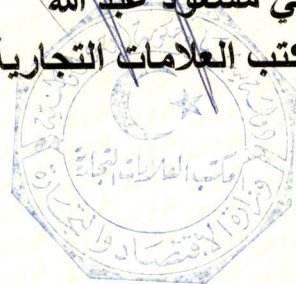 مسعود عبد الله
كتب العلامات التجارية
مكتب العلامات التجارية
وزارة الاقتصاد والتجارة